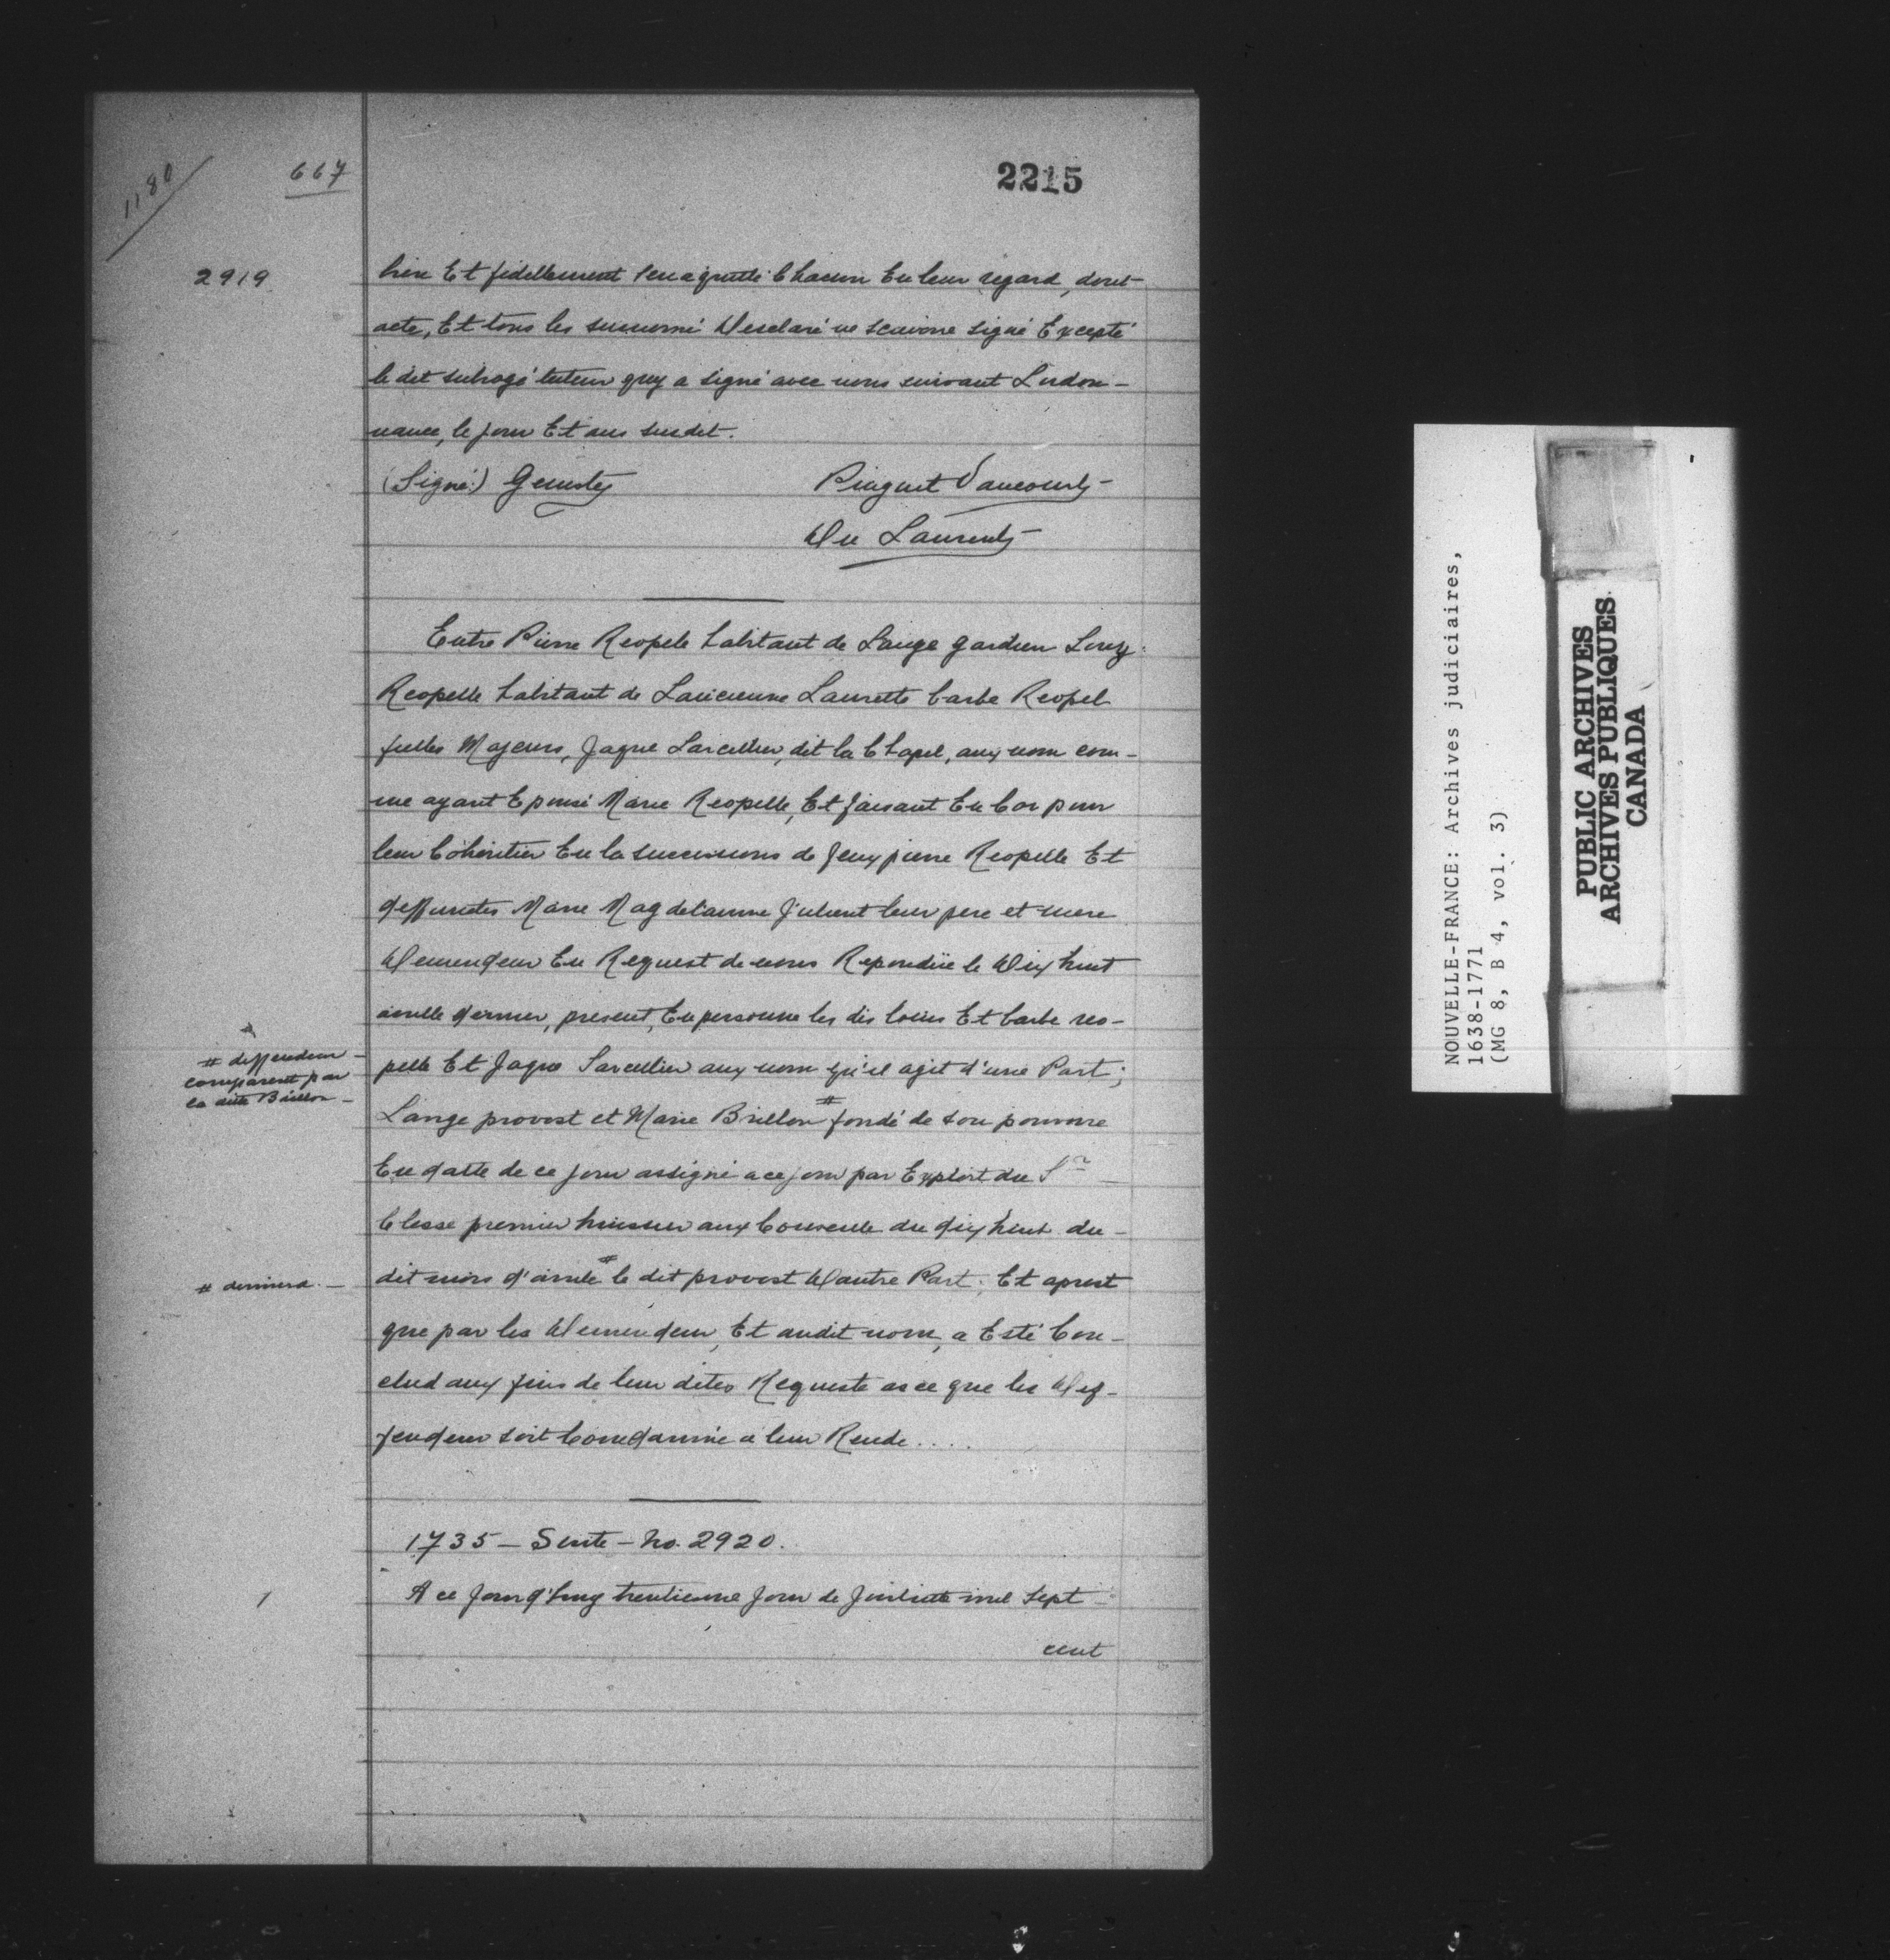 1180
667
2215
2919
bien Et fidellement sen aquitté Chacun En leur regard, dont
acte, Et tous les susnomé Desclaré ne scavoire signé Excepté
le dit subrogé tuteur quy a signé avec nous suivant Lordon-
nance, le jour Et ans susdit.
(Signé:) Genest Pinguet Vaucourt
Du Laurent
Entre Pierre Reopele habitant de Lange gardien Louy
Reopelle habitant de Lancienne Laurette barbe Reopel
filles Majeurs, Jaque Sarcellier, dit la Chapel, aux nom com-
me ayant Epousé Marie Reopelle, Et faisant En Cor pour
leur Cohéritier En la successions de feux pierre Reopelle Et
deffuntes Marie Magdelainne Julient leur pere et mere
Demendeur En Request de nous Repondüe le Dix huit
avrille dernier, present, En personne les dis louis Et barbe reo-
pelle Et Jaque Sarcellier aux nom qu'il agit d'une Part;
# deffendeur
comparent par
la dite Brillon
Lange provost et Marie Brillon # fondé de son pouvoire
En datte de ce jour assigné a ce jour par Exploit du Sr
Clesse premier huissier aux Conseille du dix huit du-
dit mois d'avrile # le dit provost D'autre Part. Et aprest
# derniers.
que par les Demendeur, Et audit nom, a Esté Con-
clud aux fins de leur dites Requeste as ce que les Def-
fendeur soit Condamné a leur Rende....
1735 – Suite – No. 2920.
1
A ce jourd'huy trentieme jour de Juilliette mil sept
cent
NOUVELLE-FRANCE: Archives judiciaires,
1638-1771
(MG 8, B 4, vol. 3)
PUBLIC ARCHIVES
ARCHIVES PUBLIQUES
CANADA